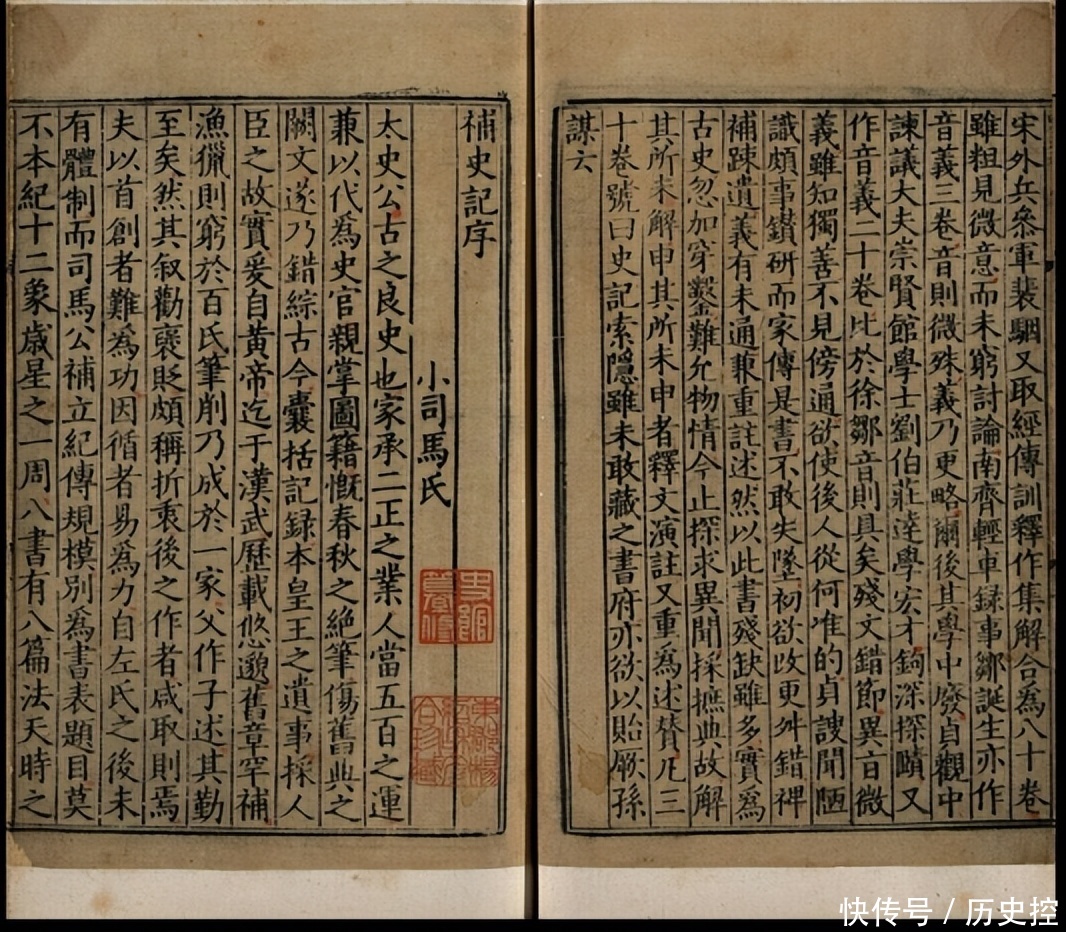 宋外兵叅軍裴駰又取經傳訓釋作集解合爲八十卷
雖粗見微意而未窮討論南齊輕車録事鄒誕生亦作
音義三卷音則微殊義乃更略爾後其學中廢貞觀中
諫議大夫崇賢館學士劉伯莊達學宏才鉤深探賾又
作音義二十卷比於徐鄒音則具矣殘文錯節異音微
義雖知獨善不見傍通欲使後人從何准的貞謏聞陋
識頗事鑚研而家傳是書不敢失墜初欲改更舛錯裨
補踈遺義有未通兼重註述然以此書殘缺雖多實爲
古史忽加穿鑿難允物情今止探求異聞採摭典故解
其所未解申其所未申者釋文演註又重爲述賛凡三
十卷號曰史記索隱雖未敢藏之書府亦欲以貽厥孫
謀云
補史記序
小司馬氏
太史公古之良史也家承二正之業人當五百之運
兼以代爲史官親掌圖籍慨春秋之絶筆傷舊典之
闕文遂乃錯綜古今囊括記録本皇王之遺事採人
臣之故實爰自黄帝迄于漢武歷載悠邈舊章罕補
漁獵則窮於百氏筆削乃成於一家父作子述其勤
至矣然其叙勸襃貶頗稱折衷後之作者咸取則焉
夫以首創者難爲功因循者易爲力自左氏之後未
有體制而司馬公補立紀傳規模别爲書表題目莫
不本紀十二象歲星之一周八書有八篇法天時之
快传号 / 历史控